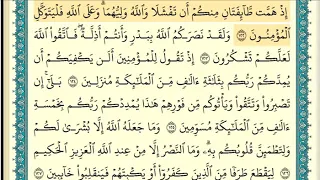 إِذْ هَمَّت طَّآئِفَتَانِ مِنكُمْ أَن تَفْشَلَا وَٱللَّهُ وَلِيُّهُمَا ۗ وَعَلَى ٱللَّهِ فَلْيَتَوَكَّلِ
ٱلْمُؤْمِنُونَ ١٢٢ وَلَقَدْ نَصَرَكُمُ ٱللَّهُ بِبَدْرٍ وَأَنتُمْ أَذِلَّةٌ ۖ فَٱتَّقُوا۟ ٱللَّهَ
لَعَلَّكُمْ تَشْكُرُونَ ١٢٣ إِذْ تَقُولُ لِلْمُؤْمِنِينَ أَلَن يَكْفِيَكُمْ أَن
يُمِدَّكُمْ رَبُّكُم بِثَلَـٰثَةِ ءَالَـٰفٍ مِّنَ ٱلْمَلَـٰٓئِكَةِ مُنزَلِينَ ١٢٤ بَلَىٰٓ ۚ إِن
تَصْبِرُوا۟ وَتَتَّقُوا۟ وَيَأْتُوكُم مِّن فَوْرِهِمْ هَـٰذَا يُمْدِدْكُمْ رَبُّكُم بِخَمْسَةِ
ءَالَـٰفٍ مِّنَ ٱلْمَلَـٰٓئِكَةِ مُسَوِّمِينَ ١٢٥ وَمَا جَعَلَهُ ٱللَّهُ إِلَّا بُشْرَىٰ لَكُمْ
وَلِتَطْمَئِنَّ قُلُوبُكُم بِهِۦ ۗ وَمَا ٱلنَّصْرُ إِلَّا مِنْ عِندِ ٱللَّهِ ٱلْعَزِيزِ ٱلْحَكِيمِ
١٢٦ لِيَقْطَعَ طَرَفًا مِّنَ ٱلَّذِينَ كَفَرُوٓا۟ أَوْ يَكْبِتَهُمْ فَيَنقَلِبُوا۟ خَآئِبِينَ ١٢٧